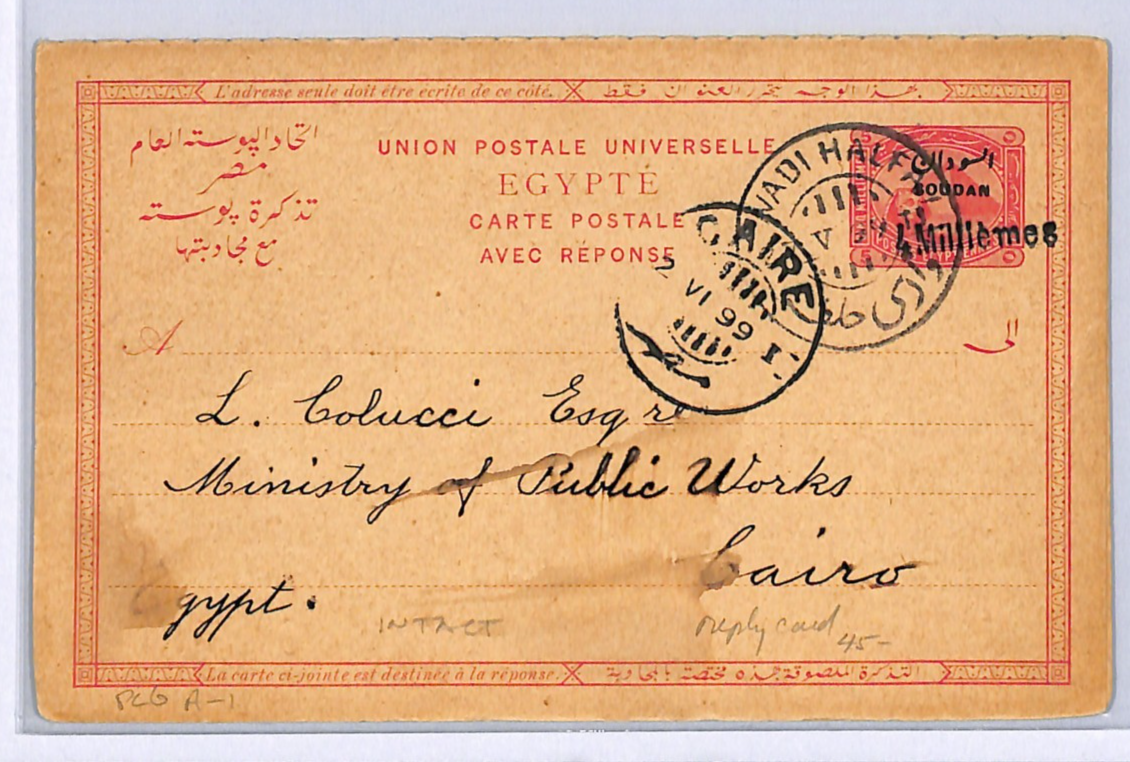 L'adresse seule doit être écrite de ce côté.
بهذا الوجه يحرر العنوان فقط
اتحاد البوسته العام
مصر
تذكرة بوسته
مع مجاوبتها
UNION POSTALE UNIVERSELLE
EGYPTE
CARTE POSTALE
AVEC RÉPONSE
السودان
SOUDAN
4 Millièmes
WADI HALFA
وادي حلفا
CAIRE
2 VI 99
A
الى
L. Colucci Esqre
Ministry of Public Works
Cairo
Egypt.
INTACT
reply card
45-
La carte ci-jointe est destinée à la réponse.
PCG A-1